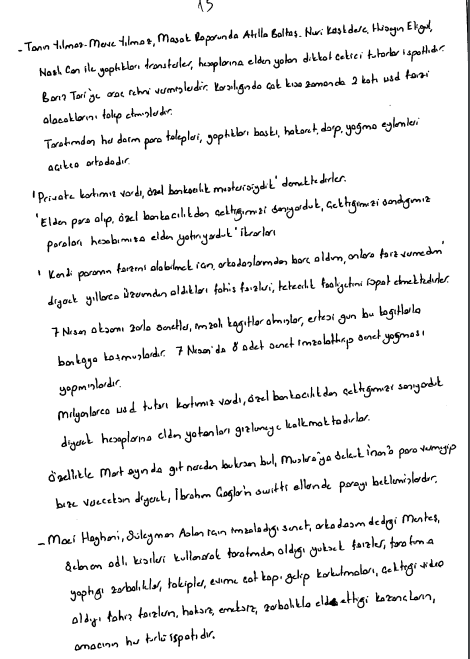 15
- Tanın Yılmaz- Merve Yılmaz, Masak Raporunda Atilla Baltaş, Nuri Kaşkdere, Hüseyin Eligül,
Nazlı Can ile yaptıkları transferler, hesaplarına elden yatan dikkat çekici tutarlar ispatlıdır.
Bana Tari'ye araç rehni vermişlerdir. Karşılığında çok kısa zamanda 2 katı usd faizi
alacaklarını talep etmişlerdir.
Tarafımdan her daim para talepleri, yaptıkları baskı, hakaret, darp, yağma eylemleri
açıkça ortadadır.
'Private kartımız vardı, özel bankacılık müşterisiydik' demektedirler.
'Elden para alıp, özel bankacılıkdan çektiğimizi sanıyorduk, çektiğimizi sandığımız
paraları hesabımıza elden yatırıyorduk' ikrarları
' Kendi paramın faizini alabilmek için, arkadaşlarımdan borç aldım, onlara faiz vermedim'
diyerek yıllarca üzerimden aldıkları fahiş faizleri, tefecilik faaliyetini ispat etmektedirler.
7 Nisan akşamı zorla senetler, imzalı kağıtlar almışlar, ertesi gün bu kağıtlarla
bankaya koşmuşlardır. 7 Nisan'da 8 adet senet imzalattırıp senet yağması
yapmışlardır.
Milyonlarca usd tutarı kartımız vardı, özel bankacılıkdan çektiğimizi sanıyorduk
diyerek hesaplarına elden yatanları gizlemeye kalkmaktadırlar.
Özellikle Mart ayında git nereden bulursan bul, Muslera'ya Selçuk İnan'a para vermeyip
bize vereceksin diyerek, İbrahim Çağlar'ın swifti ellerinde parayı beklemişlerdir.
- Maci Haghani, Süleyman Aslan için imzaladığı senet, arkadaşım dediği Menteş,
Şebnem adlı kişileri kullanarak tarafımdan aldığı yüksek faizler, tarafıma
yaptığı zorbalıklar, takipler, evime çat kapı gelip korkutmaları, çektiği video
aldığı fahiş faizlerin, haksız, emeksiz, zorbalıkla elde ettiği kazançların,
amacının her türlü ispatıdır.